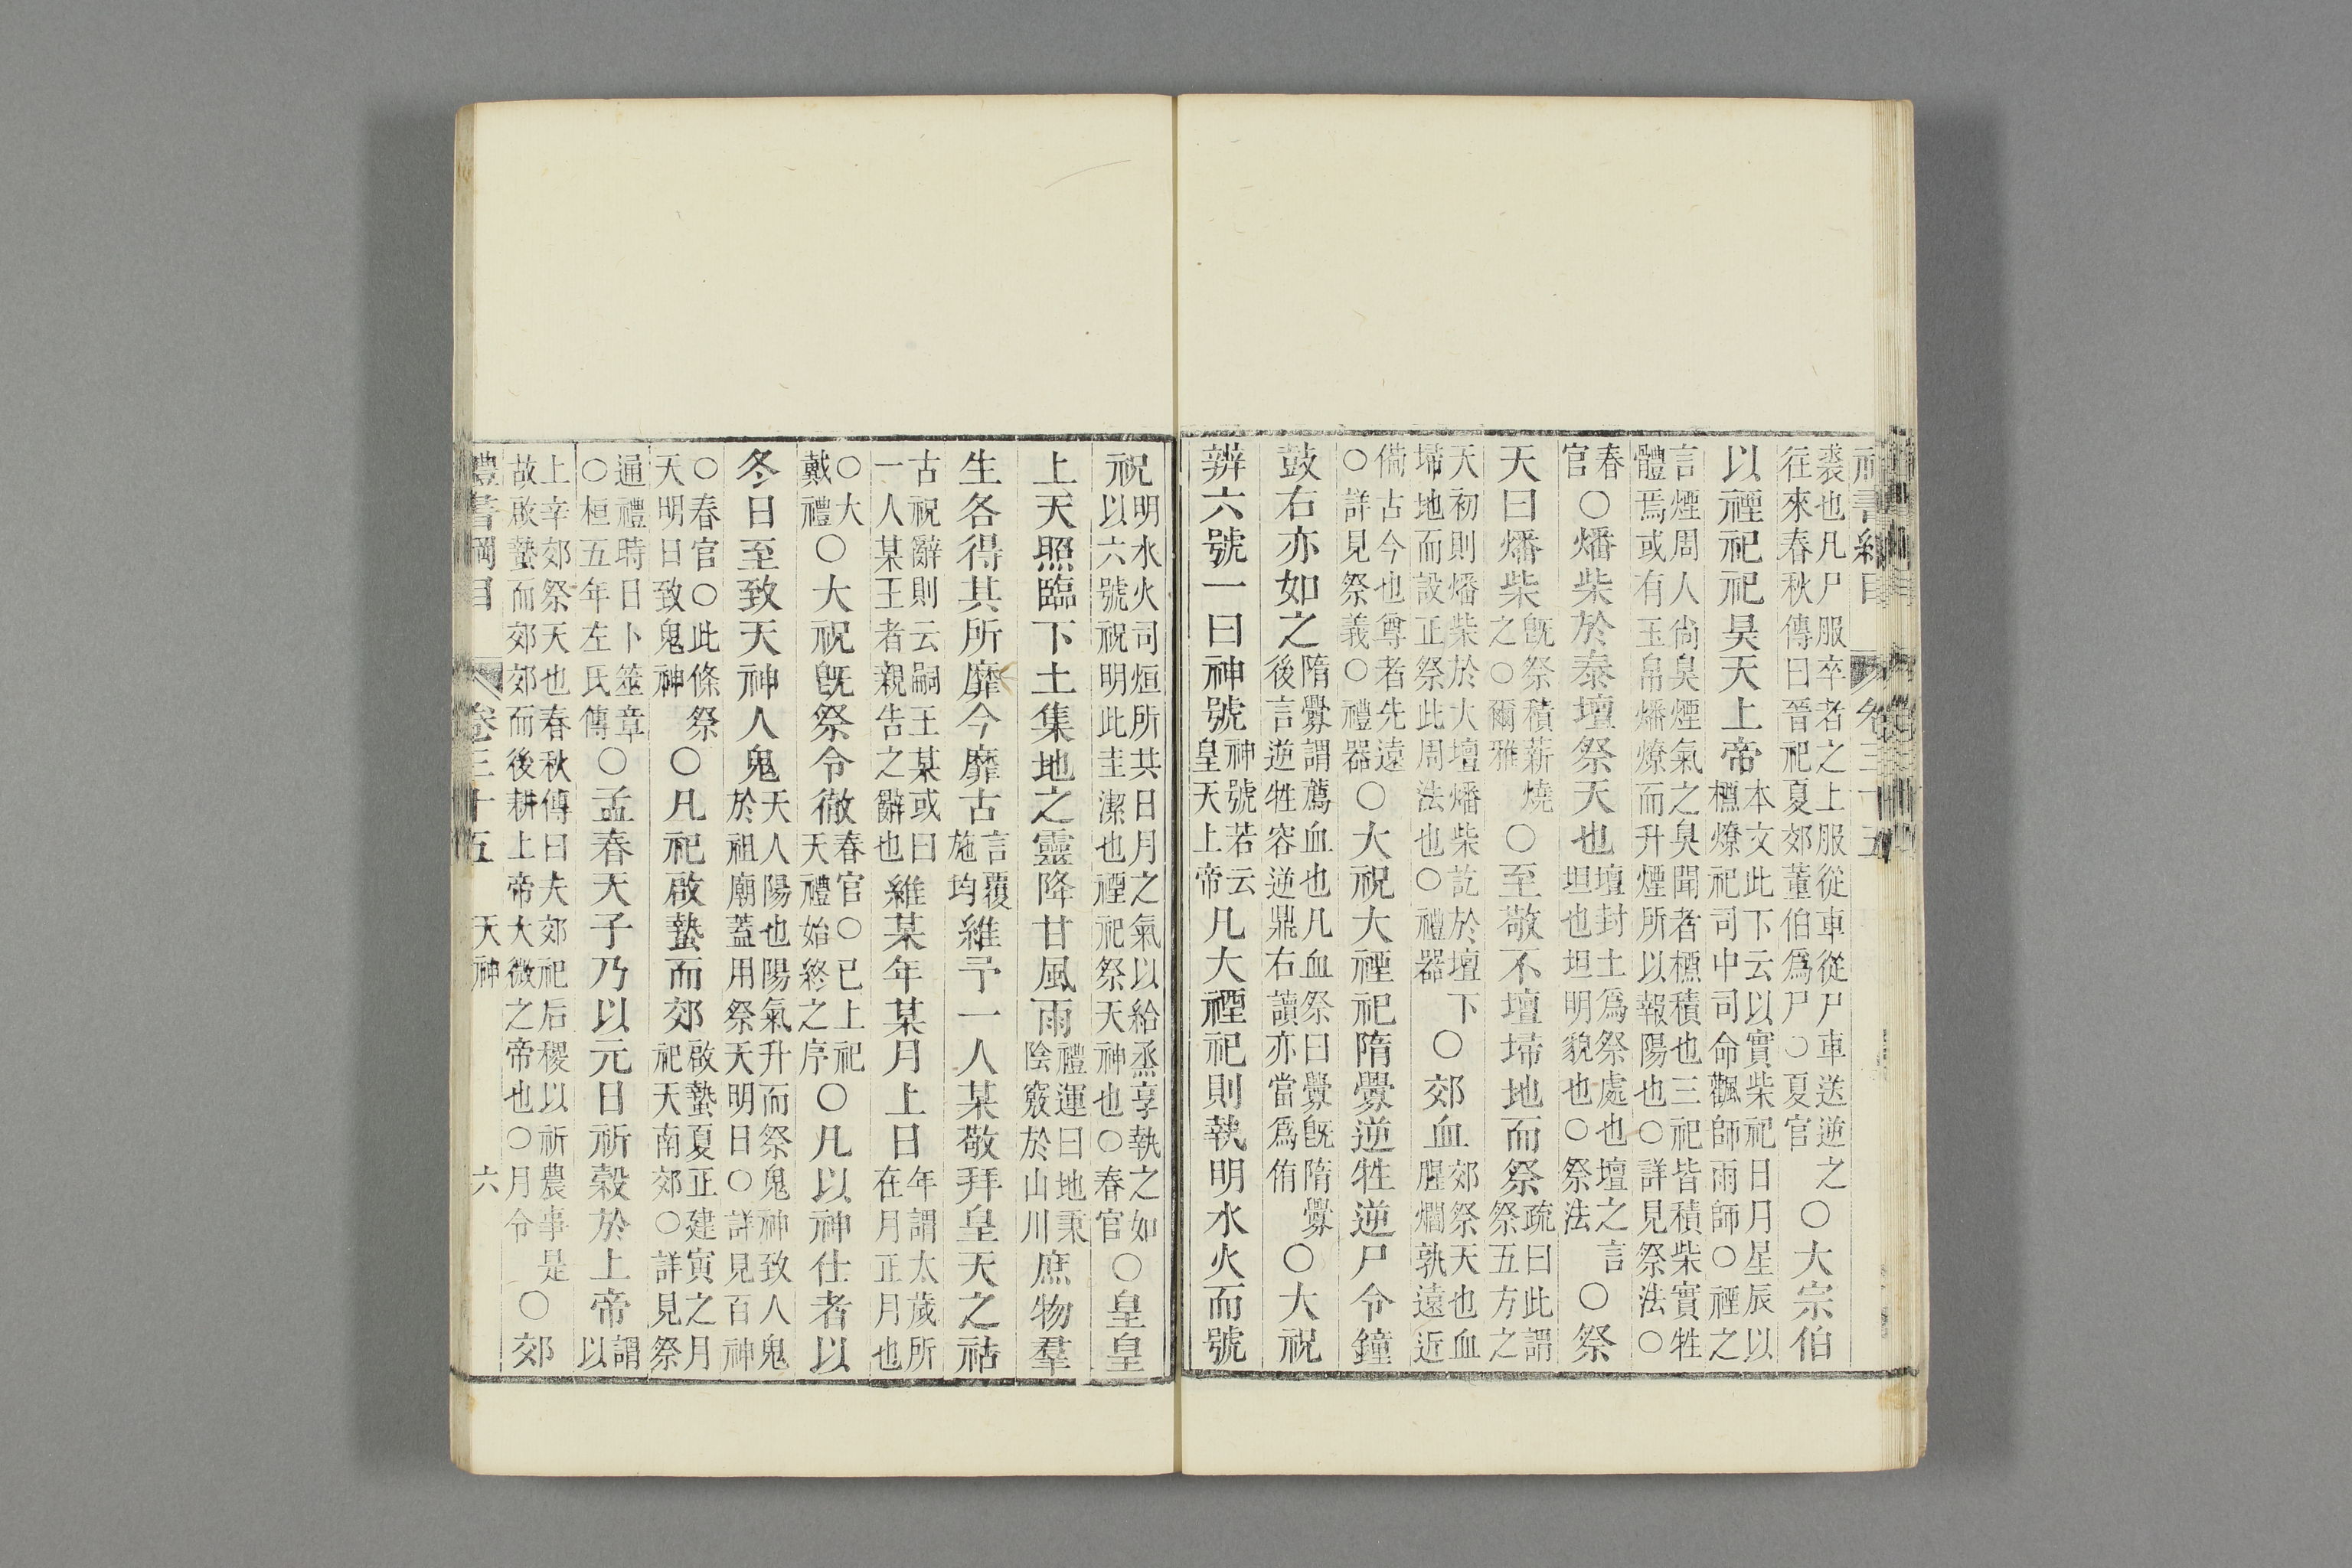 禮書綱目 卷三十五
裘也凡尸服卒者之上服從車從尸車送逆之
往來春秋傳曰晉祀夏郊董伯爲尸○夏官
○大宗伯
以禋祀祀昊天上帝
本文此下云以實柴祀日月星辰以
槱燎祀司中司命飌師雨師○禋之
言煙周人尚臭煙氣之臭聞者槱積也三祀皆積柴實牲
體焉或有玉帛燔燎而升煙所以報陽也○詳見祭法○
春
官
○燔柴於泰壇祭天也
壇封土爲祭處也壇之言
坦也坦明貌也○祭法
○祭
天曰燔柴
旣祭積薪燒
之○爾雅
○至敬不壇埽地而祭
疏曰此謂
祭五方之
天初則燔柴於大壇燔柴訖於壇下
埽地而設正祭此周法也○禮器
○郊血
郊祭天也血
腥爓孰遠近
備古今也尊者先遠
○詳見祭義○禮器
○大祝大禋祀隋釁逆牲逆尸令鐘
鼓右亦如之
隋釁謂薦血也凡血祭曰釁旣隋釁
後言逆牲容逆鼎右讀亦當爲侑
○大祝
辨六號一曰神號
神號若云
皇天上帝
凡大禋祀則執明水火而號
祝
明水火司烜所共日月之氣以給烝享執之如
以六號祝明此圭潔也禋祀祭天神也○春官
○皇皇
上天照臨下土集地之靈降甘風雨
禮運曰地秉
陰竅於山川
庶物羣
生各得其所靡今靡古
言覆
施均
維予一人某敬拜皇天之祜
古祝辭則云嗣王某或曰
一人某王者親告之辭也
維某年某月上日
年謂太歲所
在月正月也
○大
戴禮
○大祝旣祭令徹
春官○已上祀
天禮始終之序
○凡以神仕者以
冬日至致天神人鬼
天人陽也陽氣升而祭鬼神致人鬼
於祖廟蓋用祭天明日○詳見百神
○春官○此條祭
天明日致鬼神
○凡祀啟蟄而郊
啟蟄夏正建寅之月
祀天南郊○詳見祭
通禮時日卜筮章
○桓五年左氏傳
○孟春天子乃以元日祈穀於上帝
謂
以
上辛郊祭天也春秋傳曰夫郊祀后稷以祈農事是
故啟蟄而郊郊而後耕上帝大微之帝也○月令
○郊
禮書綱目 卷三十五 天神 六